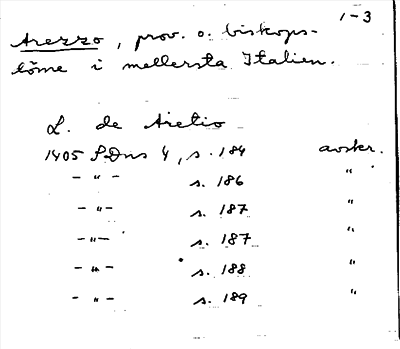 1-3
Arezzo, prov. o. biskops-
döme i mellersta Italien.
L. de Aretio
1405 SDns 4, s. 184 avskr.
- " - s. 186 "
- " - s. 187 "
- " - s. 187 "
- " - s. 188 "
- " - s. 189 "